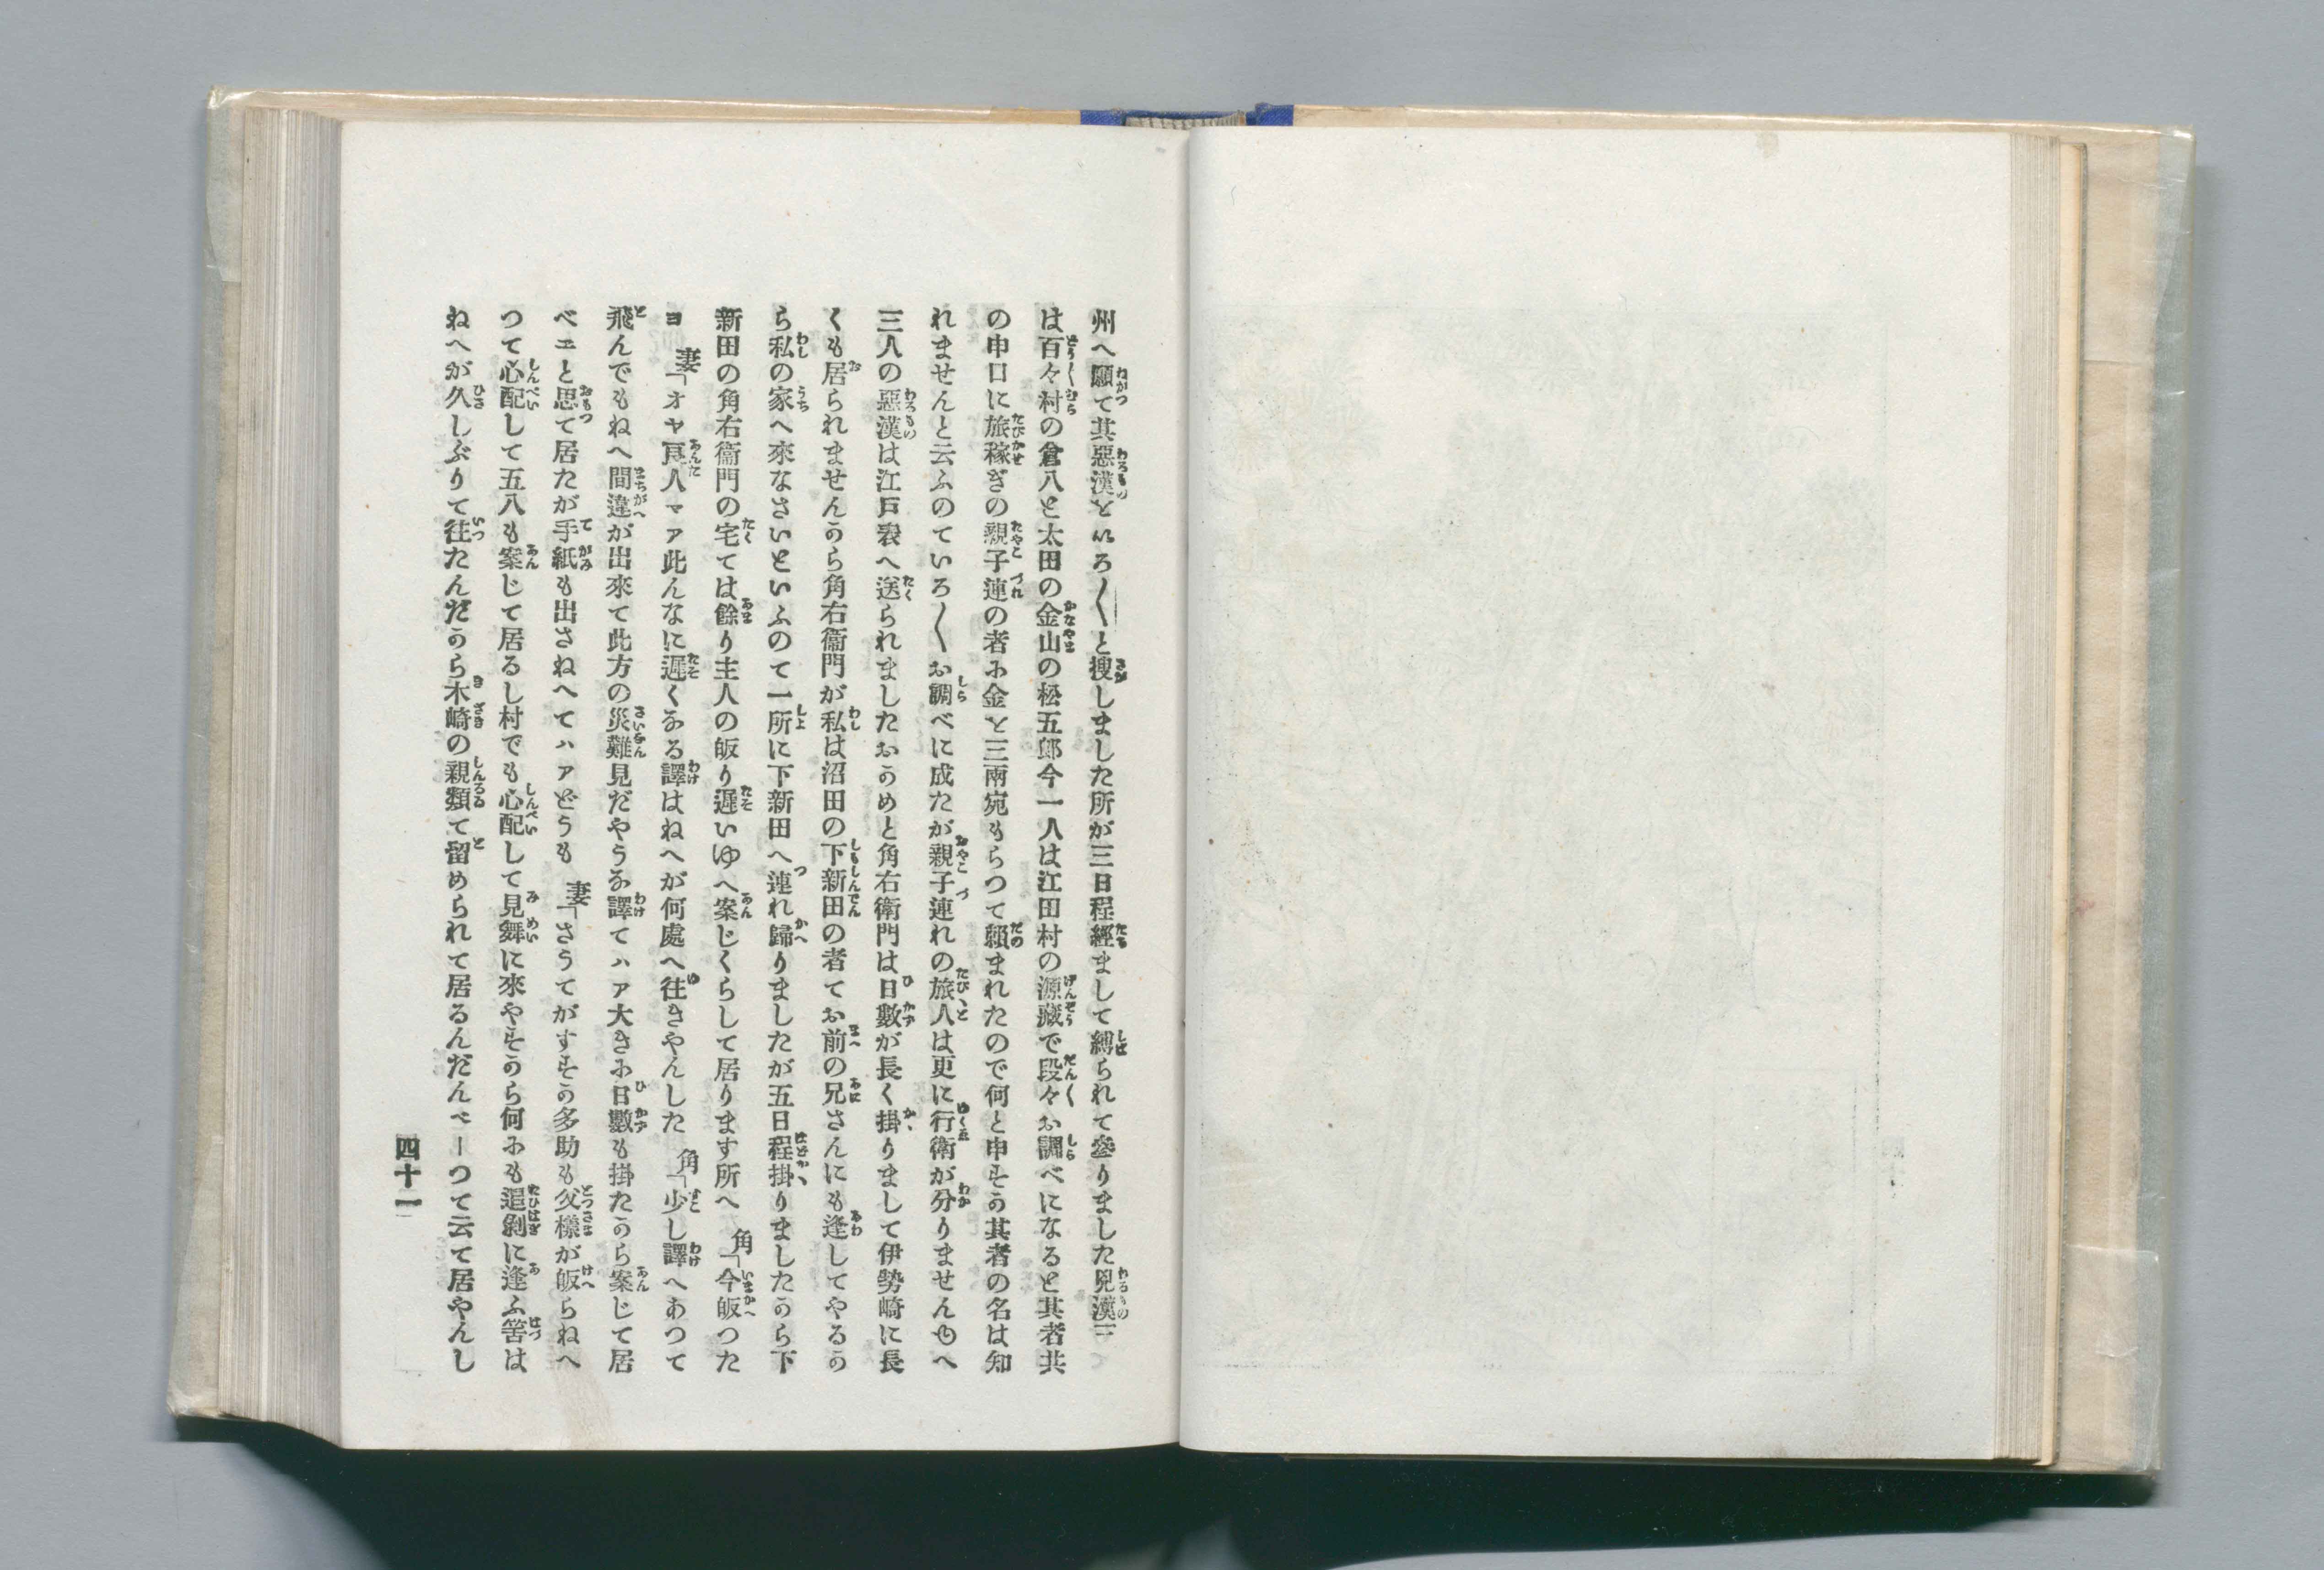 州へ願て其惡漢をいろ〳〵と捜しました所が三日程經まして縛られて參りました兇漢三
は百々村の倉八と太田の金山の松五郎今一人は江田村の源藏で段々お調べになると其者共
の申口に旅稼ぎの親子連の者に金を三兩宛もらつて賴まれたので何と申すか其者の名は知
れませんと云ふのでいろ〳〵お調べに成たが親子連れの旅人は更に行衛が分りませんゆへ
三人の惡漢は江戸表へ送られましたおかめと角右衛門は日數が長く掛りまして伊勢崎に長
くも居られませんから角右衞門が私は沼田の下新田の者でお前の兄さんにも逢してやるか
ら私の家へ來なさいといふので一所に下新田へ連れ歸りましたが五日程掛りましたから下
新田の角右衞門の宅では餘り主人の皈り遲いゆへ案じくらして居ります所へ 角「今皈つた
ヨ 妻「オヤ良人マア此んなに遲くなる譯はねへが何處へ往きやんした 角「少し譯へあつて
飛んでもねへ間違が出來て此方の災難見だやうな譯でハア大きに日數も掛たから案じて居
べエと思て居たが手紙も出さねへでハアどうも 妻「さうでがすすか多助も父樣が皈らねへ
つて心配して五八も案じて居るし村でも心配して見舞に來やすから何にも追剝に逢ふ筈は
ねへが久しぶりで往たんだから木崎の親類で留められて居るんだんべーつて云て居やんし
四十一